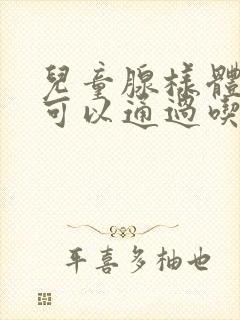 兒童腺樣體
可以通過喫
平喜多柚也